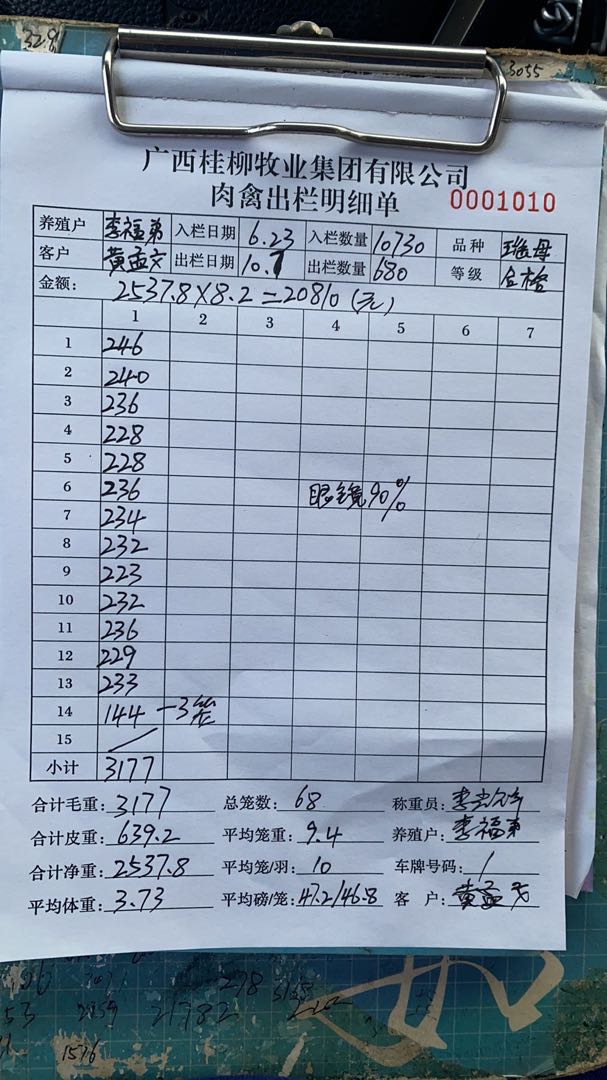 32.9
3055
广西桂柳牧业集团有限公司
肉禽出栏明细单 0001010
养殖户 李福弟 入栏日期 6.23 入栏数量 10730 品种 瑶母
客户 黄孟文 出栏日期 10.7 出栏数量 680 等级 合格
金额: 2537.8×8.2=20810(元)
1 2 3 4 5 6 7
1 246
2 240
3 236
4 228
5 228
6 236 眼镜90%
7 234
8 232
9 223
10 232
11 236
12 229
13 233
14 144 —3笼
15
小计 3177
合计毛重: 3177 总笼数: 68 称重员:
合计皮重: 639.2 平均笼重: 9.4 养殖户: 李福弟
合计净重: 2537.8 平均笼/羽: 10 车牌号码: /
平均体重: 3.73 平均磅/笼: 47.2/46.8 客户: 黄孟文
278
21782
1576